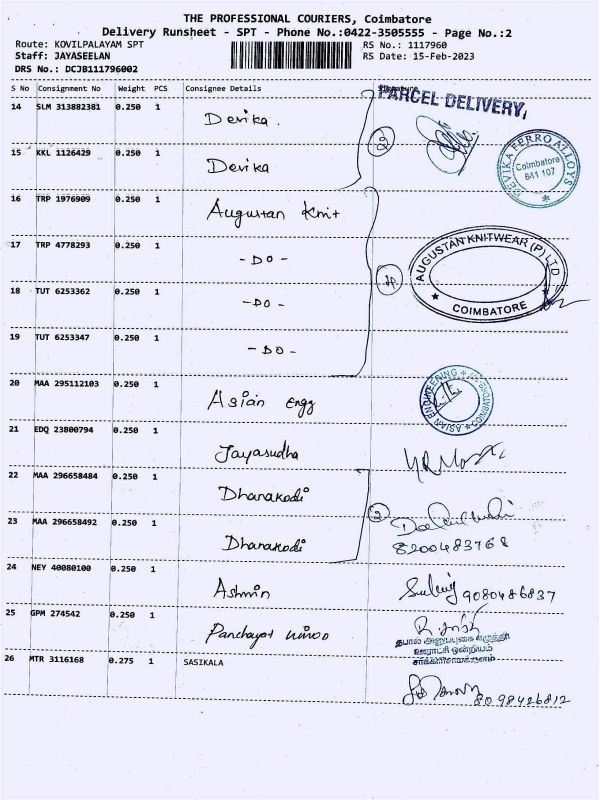 THE PROFESSIONAL COURIERS, Coimbatore
Delivery Runsheet - SPT - Phone No.:0422-3505555 - Page No.:2
Route: KOVILPALAYAM SPT
RS No.: 1117960
Staff: JAYASEELAN
RS Date: 15-Feb-2023
DRS No.: DCJB111796002
S No Consignment No Weight PCS Consignee Details Signature
PARCEL DELIVERY,
14 SLM 313882381 0.250 1 Devika.
2
DEVIKA FERRO ALLOYS
Coimbatore
641 107
15 KKL 1126429 0.250 1 Devika
16 TRP 1976909 0.250 1 Augustan Knit.
17 TRP 4778293 0.250 1 - DO -
4
AUGUSTAN KNITWEAR (P) LTD
COIMBATORE
18 TUT 6253362 0.250 1 - DO -
19 TUT 6253347 0.250 1 - DO -
20 MAA 295112103 0.250 1 Asian Engg
ASIAN ENGINEERING
COIMBATORE
21 EDQ 23800794 0.250 1 Jayasudha
22 MAA 296658484 0.250 1 Dhanakodi
2
8200483768
23 MAA 296658492 0.250 1 Dhanakodi
24 NEY 40080100 0.250 1 Ashmin
9080486837
25 GPM 274542 0.250 1 Panchayat
ஊராட்சி ஒன்றியம்
26 MTR 3116168 0.275 1 SASIKALA
8098426812